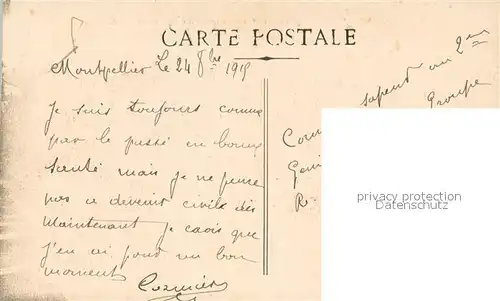 CARTE POSTALE
Montpellier Le 24 8bre 1915
Je suis toujours comme
par le passé en bonne
santé mais je ne pense
pas a devenir civile dès
Maintenant je crois que
j'en ai pour un bon
moment
Cormier
sapeur au 2em
Groupe
privacy protection
Datenschutz